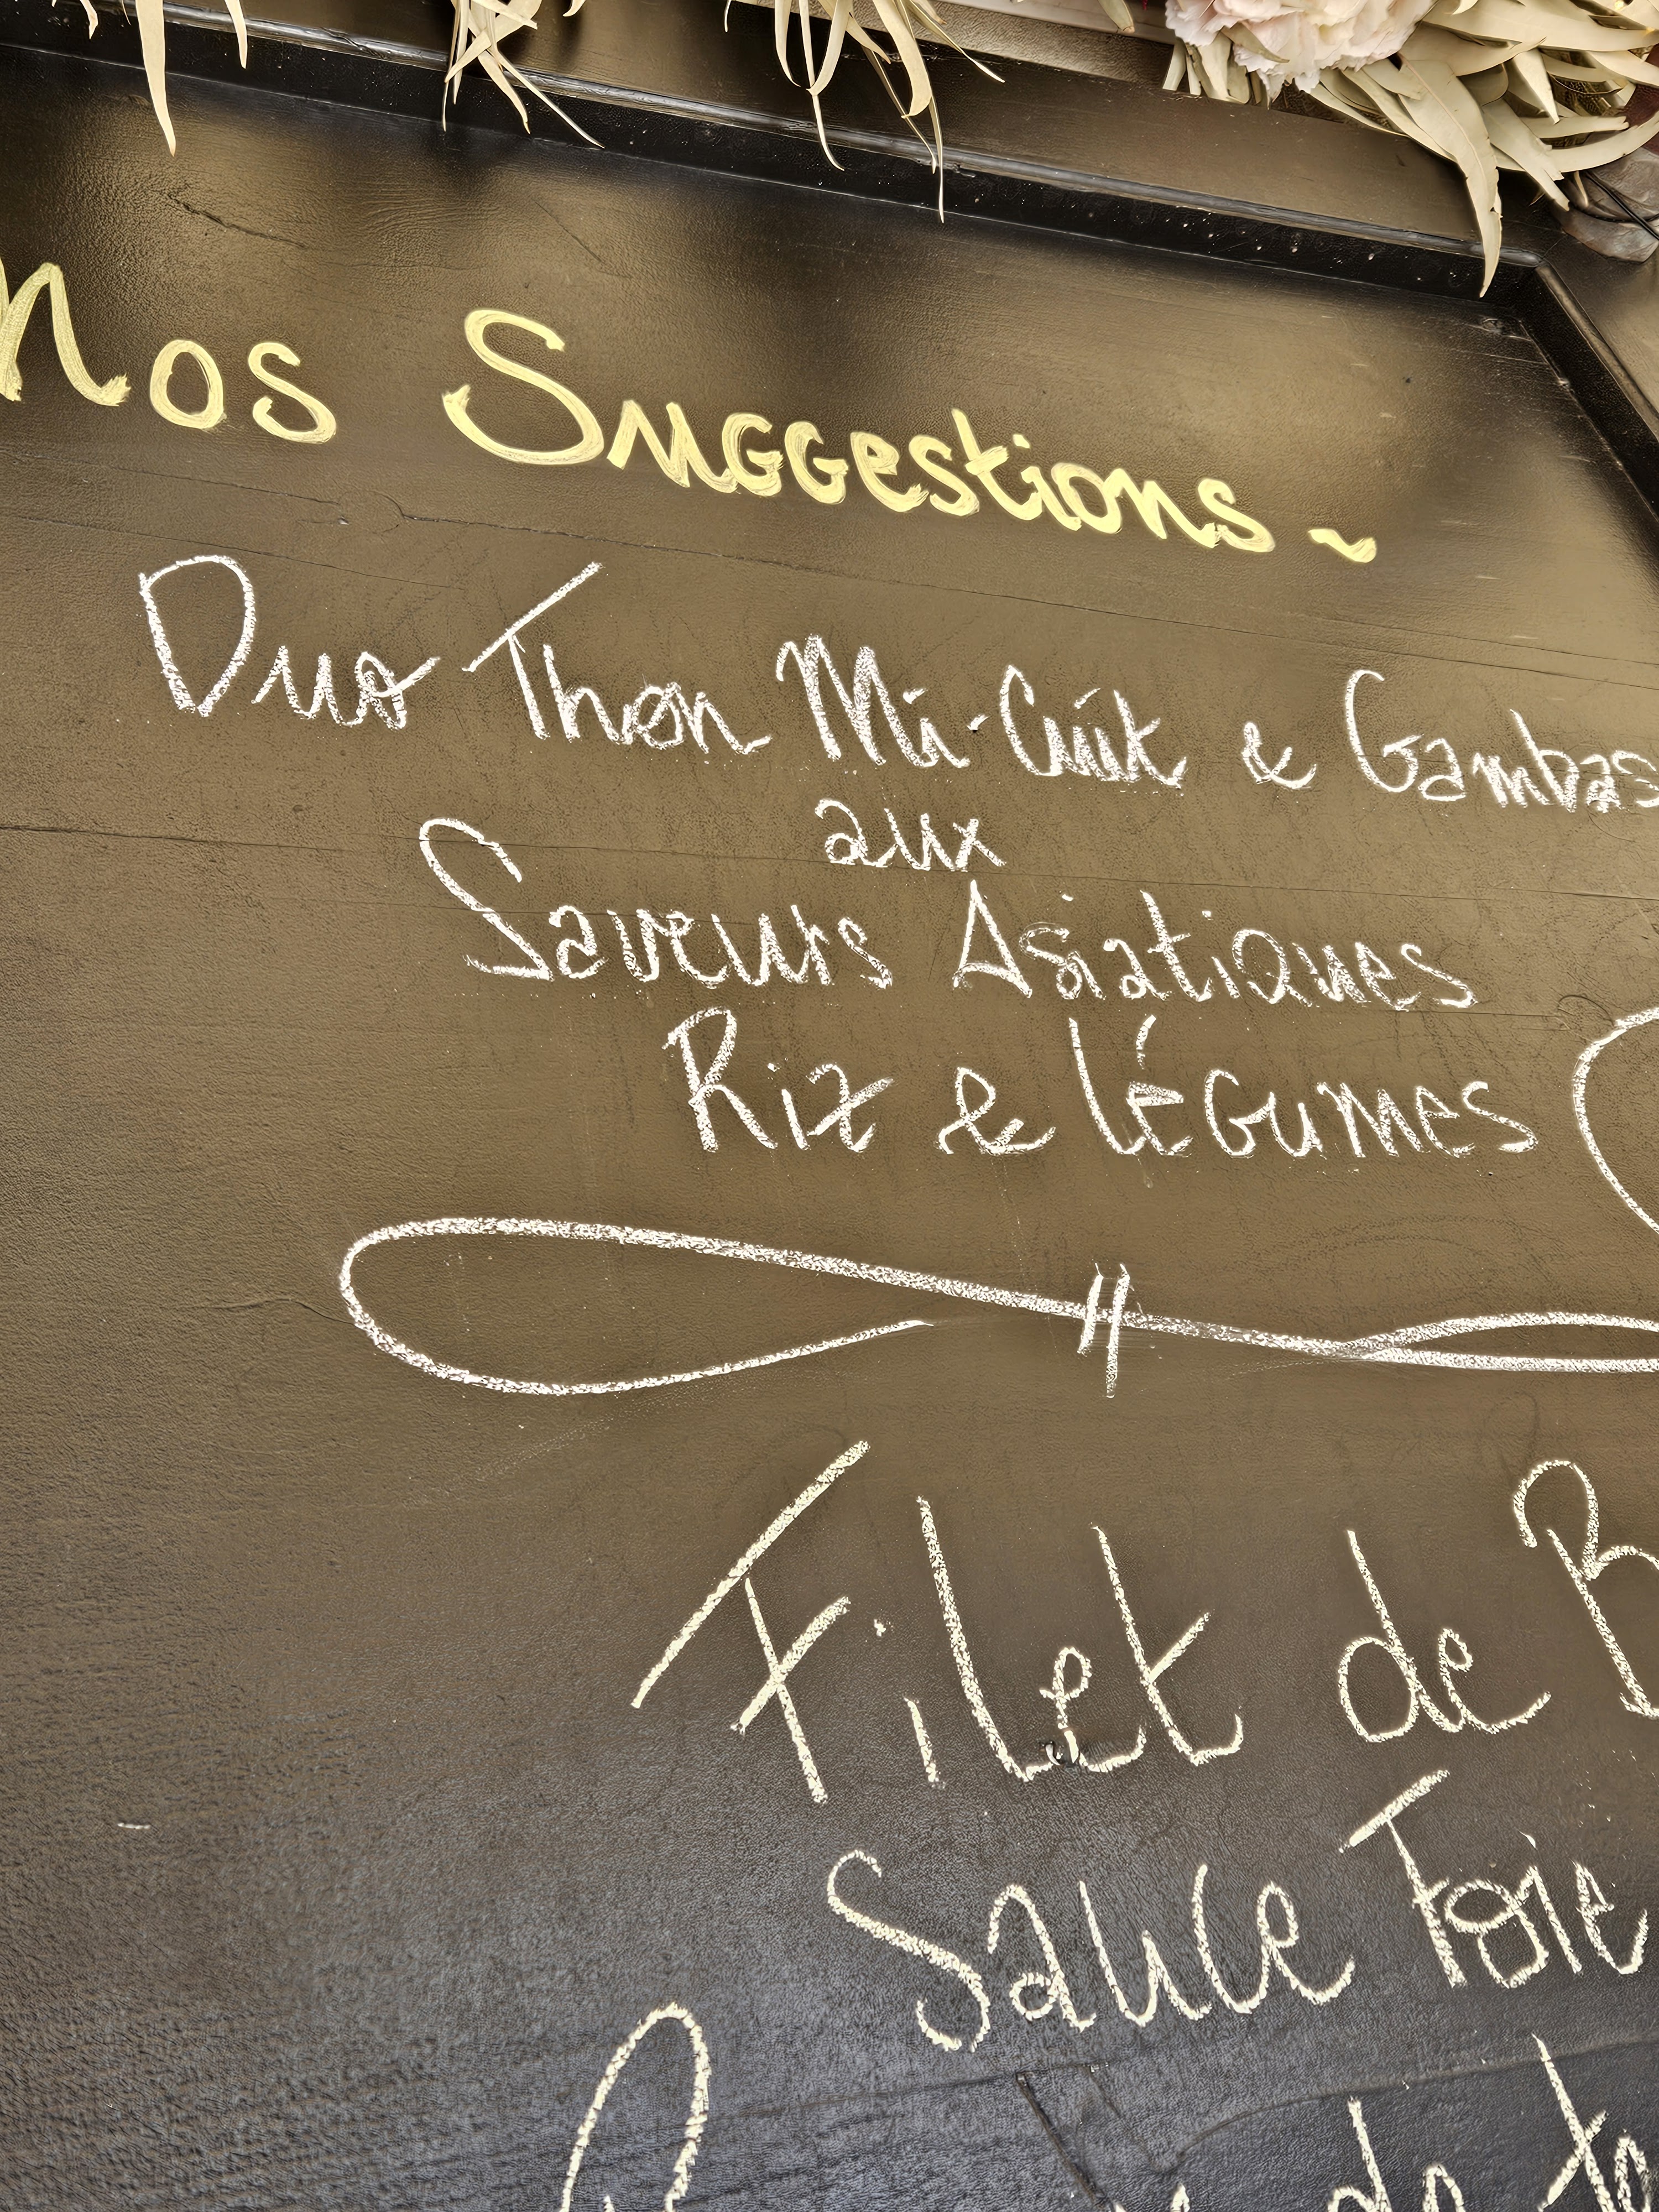 Nos Suggestions ~
Duo Thon Mi-Cuit & Gambas
aux
Saveurs Asiatiques
Riz & légumes
Filet de B
Sauce Foie
de